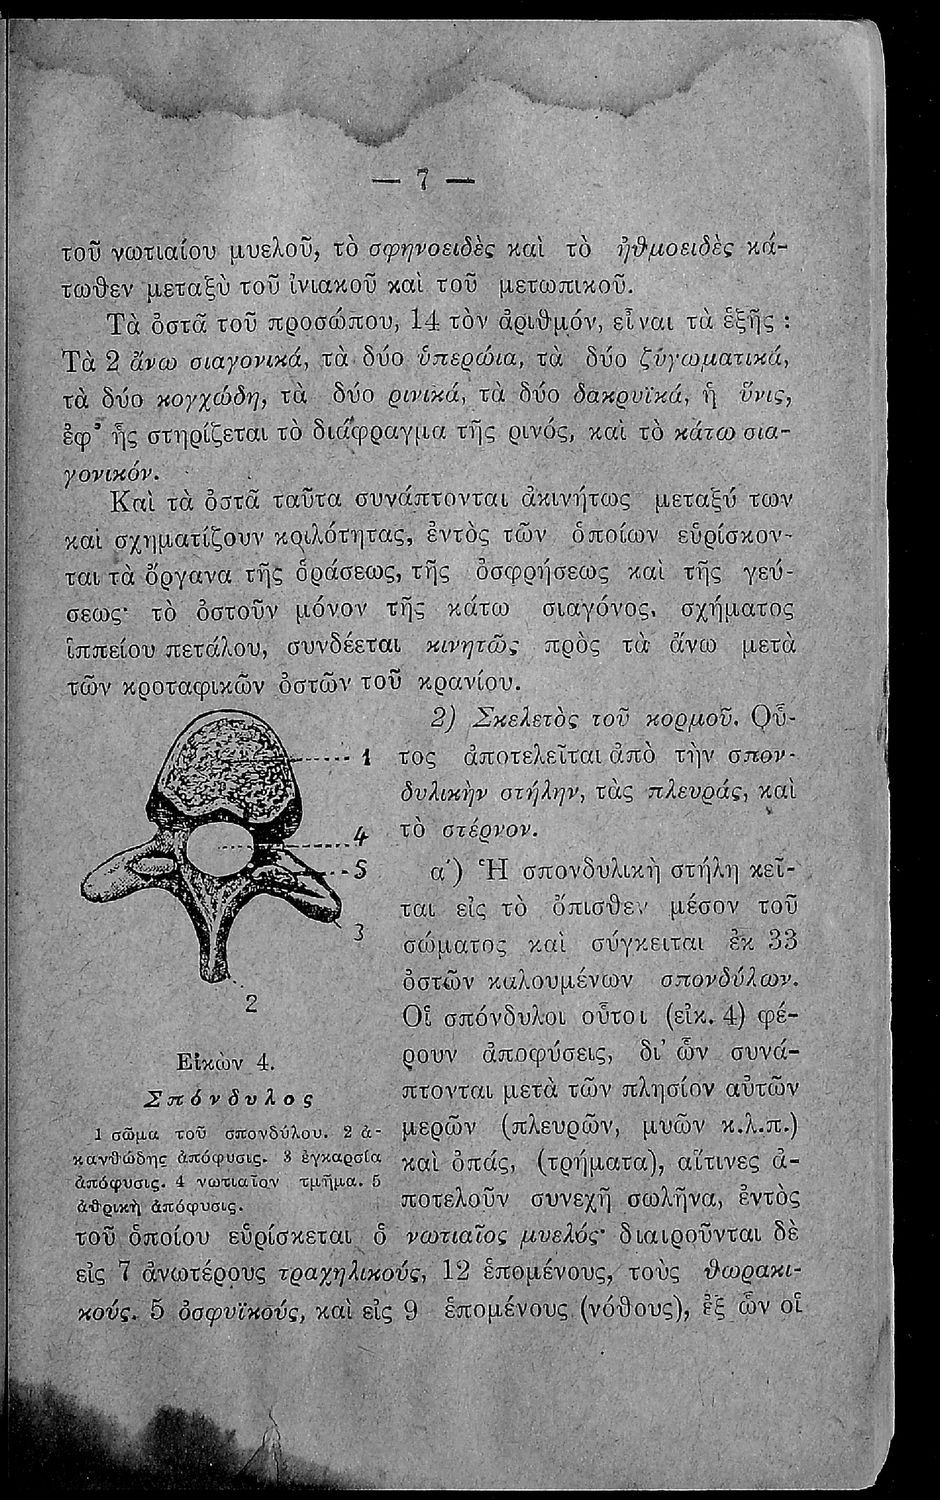 — 7 —
τοῦ νωτιαίου μυελοῦ, τὸ σφηνοειδὲς καὶ τὸ ἠθμοειδὲς κά-
τωθεν μεταξὺ τοῦ ἰνιακοῦ καὶ τοῦ μετωπικοῦ.
Τὰ ὀστᾶ τοῦ προσώπου, 14 τὸν ἀριθμόν, εἶναι τὰ ἑξῆς :
Τὰ 2 ἄνω σιαγονικά, τὰ δύο ὑπερώια, τὰ δύο ζυγωματικά,
τὰ δύο κογχώδη, τὰ δύο ρινικά, τὰ δύο δακρυϊκά, ἡ ὕνις,
ἐφ' ἧς στηρίζεται τὸ διάφραγμα τῆς ρινός, καὶ τὸ κάτω σια-
γονικόν.
Καὶ τὰ ὀστᾶ ταῦτα συνάπτονται ἀκινήτως μεταξύ των
καὶ σχηματίζουν κοιλότητας, ἐντὸς τῶν ὁποίων εὑρίσκον-
ται τὰ ὄργανα τῆς ὁράσεως, τῆς ὀσφρήσεως καὶ τῆς γεύ-
σεως· τὸ ὀστοῦν μόνον τῆς κάτω σιαγόνος, σχήματος
ἱππείου πετάλου, συνδέεται κινητῶς πρὸς τὰ ἄνω μετὰ
τῶν κροταφικῶν ὀστῶν τοῦ κρανίου.
1
4
5
3
2
Εἰκὼν 4.
Σπόνδυλος
1 σῶμα τοῦ σπονδύλου. 2 ἀ-
κανθώδης ἀπόφυσις. 3 ἐγκαρσία
ἀπόφυσις. 4 νωτιαῖον τμῆμα. 5
ἀθρικὴ ἀπόφυσις.
2) Σκελετὸς τοῦ κορμοῦ. Οὗ-
τος ἀποτελεῖται ἀπὸ τὴν σπον-
δυλικὴν στήλην, τὰς πλευράς, καὶ
τὸ στέρνον.
α΄) Ἡ σπονδυλικὴ στήλη κεῖ-
ται εἰς τὸ ὄπισθεν μέσον τοῦ
σώματος καὶ σύγκειται ἐκ 33
ὀστῶν καλουμένων σπονδύλων.
Οἱ σπόνδυλοι οὗτοι (εἰκ. 4) φέ-
ρουν ἀποφύσεις, δι' ὧν συνά-
πτονται μετὰ τῶν πλησίον αὐτῶν
μερῶν (πλευρῶν, μυῶν κ.λ.π.)
καὶ ὀπάς, (τρήματα), αἵτινες ἀ-
ποτελοῦν συνεχῆ σωλῆνα, ἐντὸς
τοῦ ὁποίου εὑρίσκεται ὁ νωτιαῖος μυελός· διαιροῦνται δὲ
εἰς 7 ἀνωτέρους τραχηλικούς, 12 ἑπομένους, τοὺς θωρακι-
κούς. 5 ὀσφυϊκούς, καὶ εἰς 9 ἑπομένους (νόθους), ἐξ ὧν οἱ